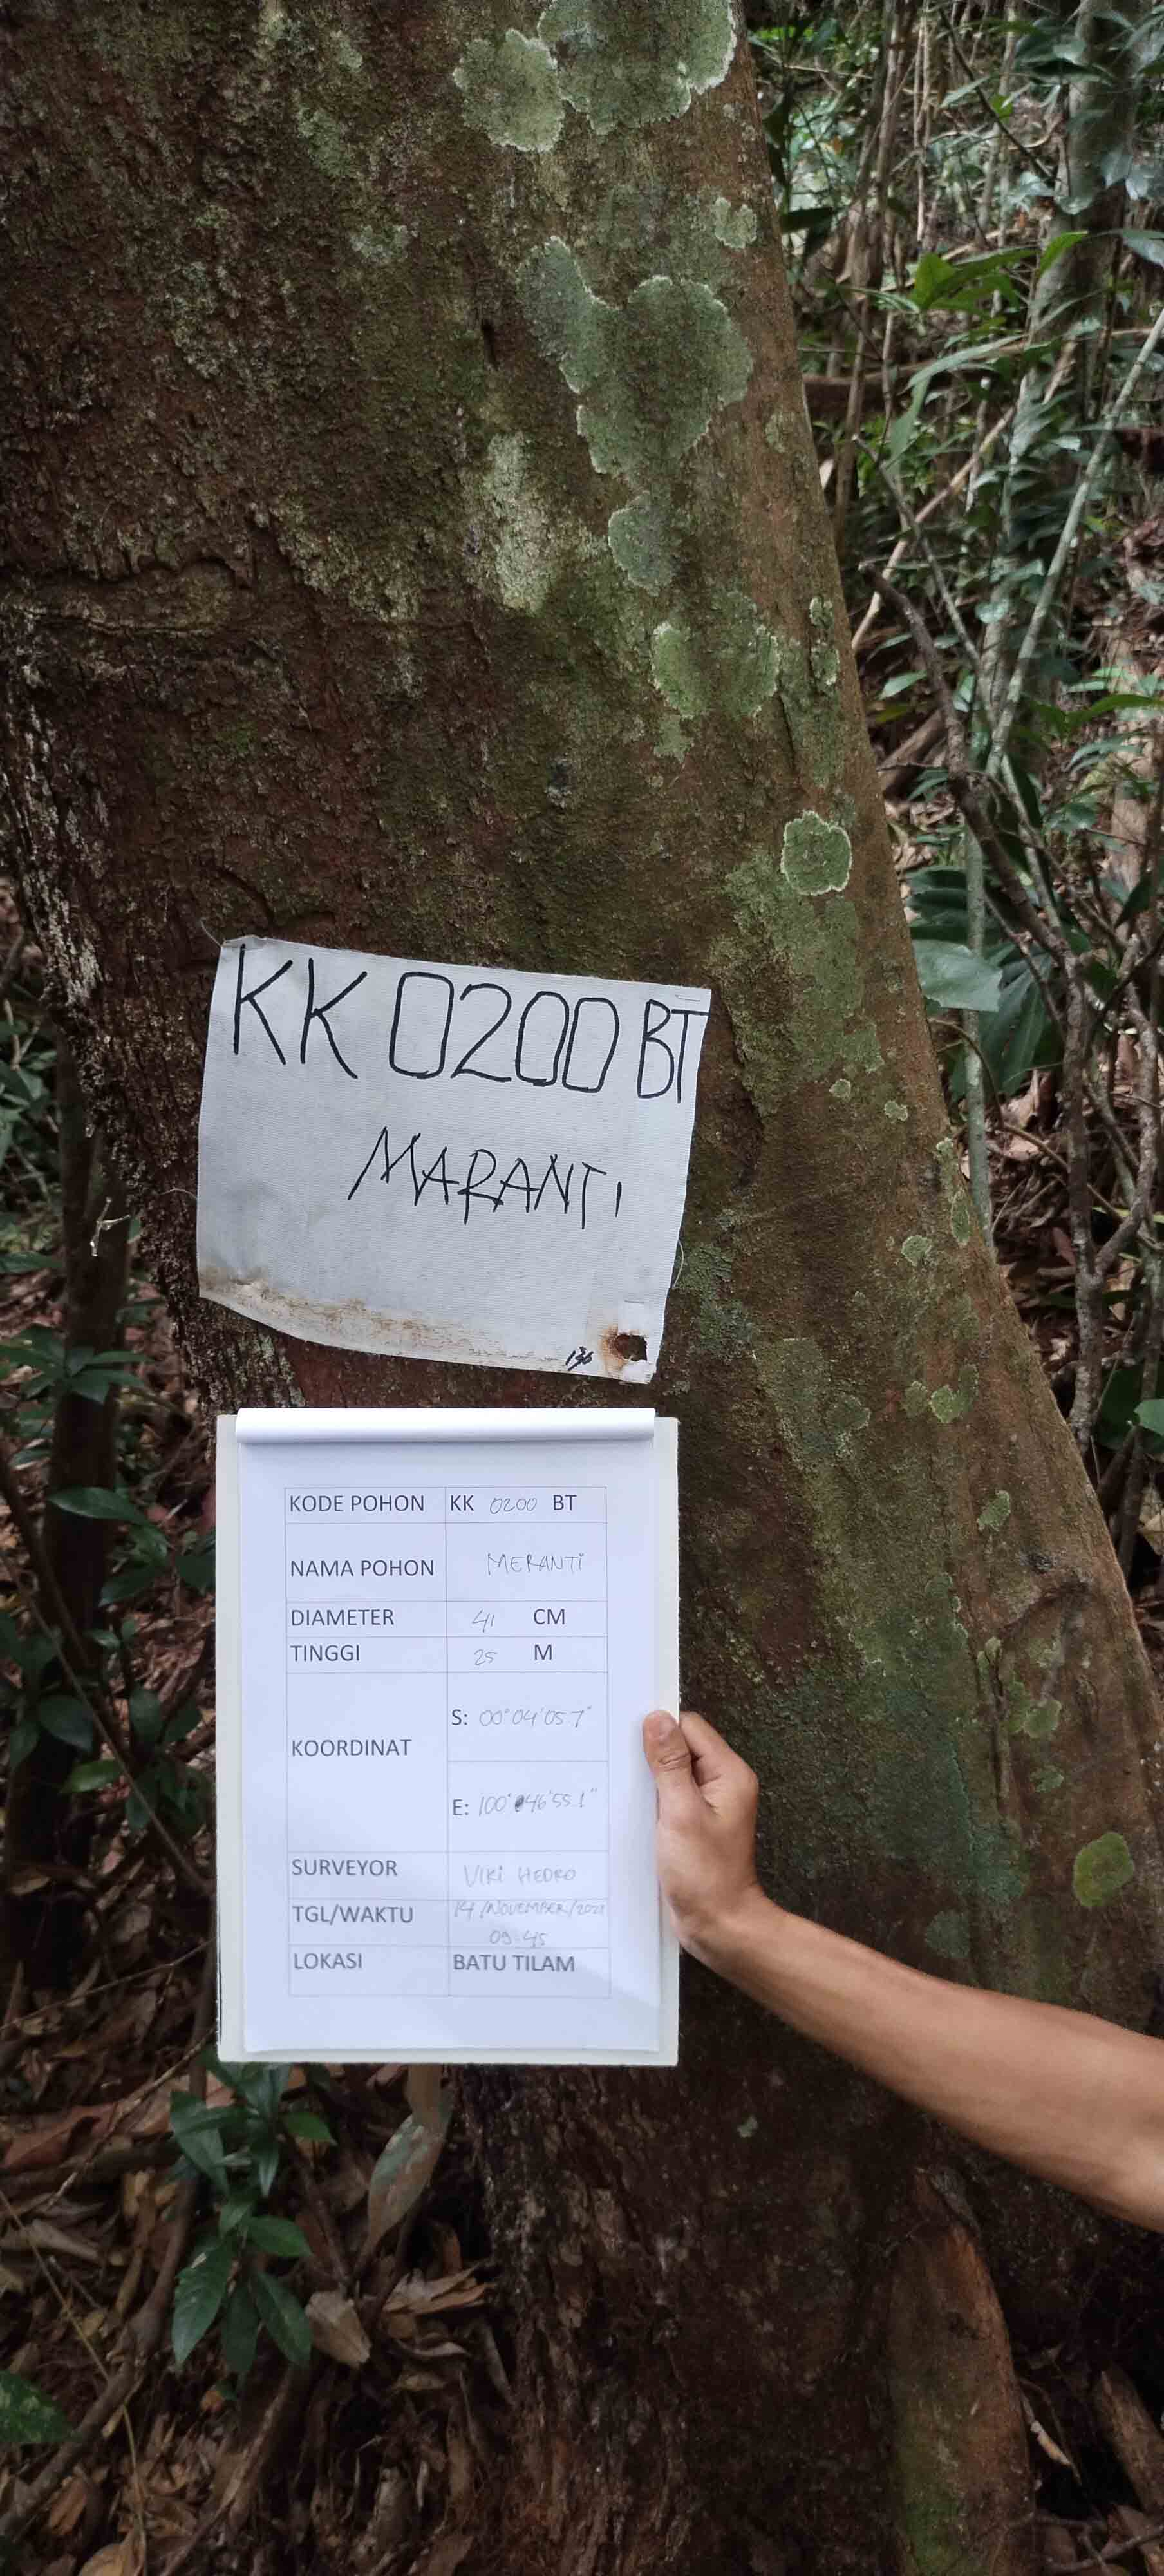 KK 0200 BT
MARANTI
136
KODE POHON KK 0200 BT
NAMA POHON MERANTI
DIAMETER 41 CM
TINGGI 25 M
KOORDINAT
S: 00°04'05.7"
E: 100°46'55.1"
SURVEYOR VIKI HEDRO
TGL/WAKTU 14/NOVEMBER/2021
09.45
LOKASI BATU TILAM